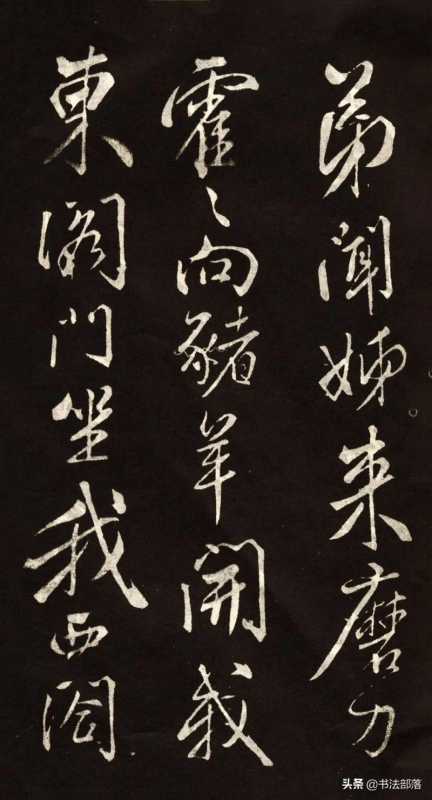 弟聞姊来磨刀
霍々向豬羊開我
東閣門坐我西閣
头条 @书法部落